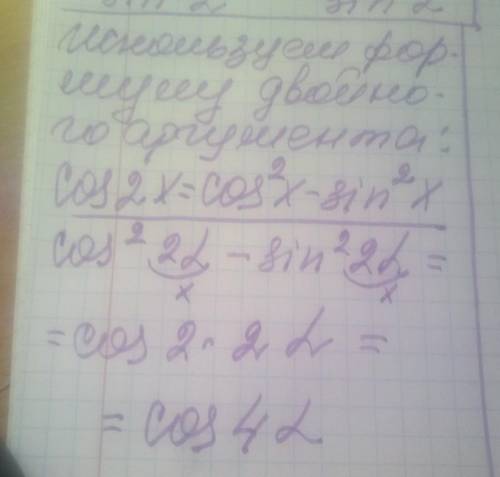 sin 2 sin 2
используем фор-
мулу двойно-
го аргумента:
cos2x=cos²x-sin²x
cos² 2α - sin² 2α =
x x
= cos 2 · 2 α =
= cos 4α